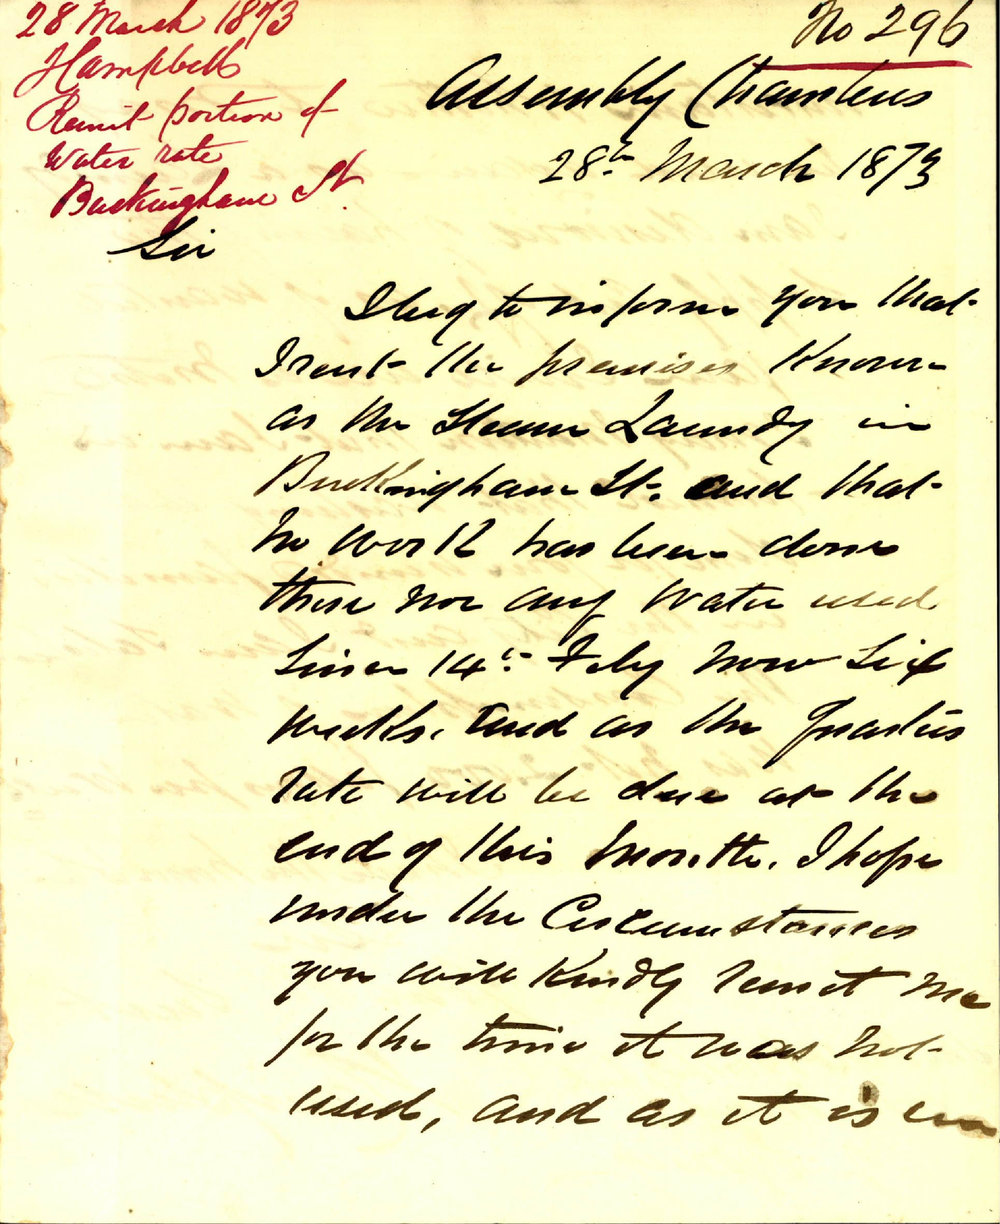 28 March 1873
J Campbell
Remit portion of
Water rate
Buckingham St.
No 296
Assembly Chambers
28th March 1873
Sir
I beg to inform you that
I rent the premises Known
as the Steam Laundry in
Buckingham St. and that
no work has been done
there nor any water used
since 14th Feby now Six
weeks. And as the quarters
rate will be due at the
end of this Month. I hope
under the Circumstances
you will Kindly remit me
for the time it was not
used, and as it is